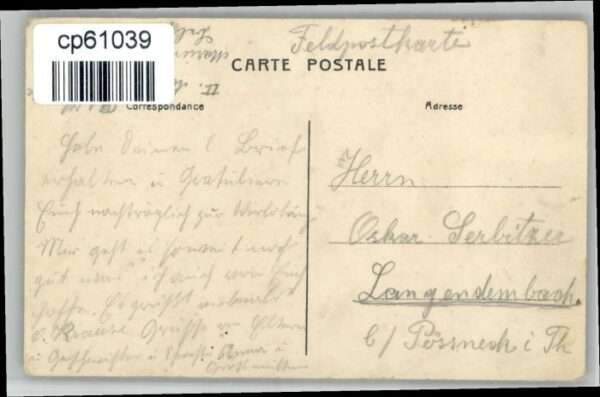 cp61039
Feldpostkarte
CARTE POSTALE
II.
Correspondance
Adresse
Habe Deinen l. Brief
erhalten u Gratuliere
Euch nachträglich zur Verlobung
Mir geht es soweit noch
gut was ich auch von Euch
hoffe. Es grüßt vielmals
Krause Grüsse an Eltern
u Geschwister u Anna u
Großmutter
Herrn
Oskar Serbitzer
Langendembach
b/ Pössneck i Th